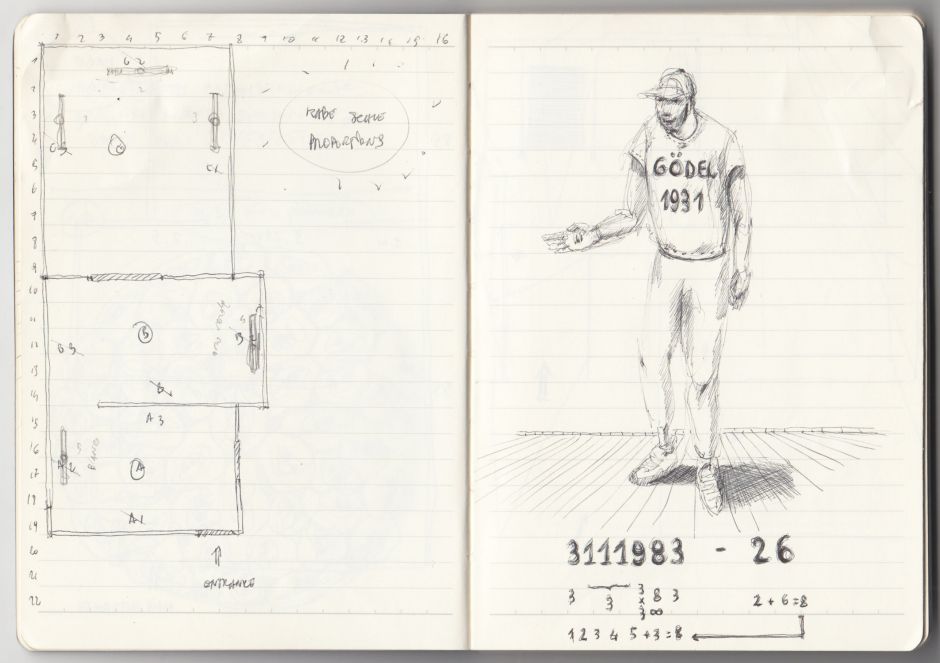 1 2 3 4 5 6 7 8 9 10 11 12 13 14 15 16
1
2
3
4
5
6
7
8
9
10
11
12
13
14
15
16
17
18
19
20
21
22
2
3
3
SCALE
PROPORTIONS
B
B
A3
A
A1
ENTRANCE
GÖDEL
1931
3111983 - 26
3 3 8 3
3 x
3 ∞
2 + 6 = 8
1 2 3 4 5 + 3 = 8